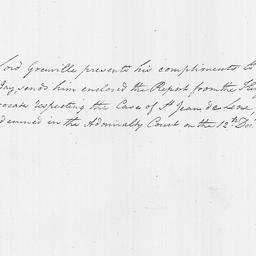 Lord Grenville presents his compliments to
Jay, sends him enclosed the Report from the King
vocate respecting the Case of St Jean de Lone,
demned in the Admiralty Court on the 12th Decr.